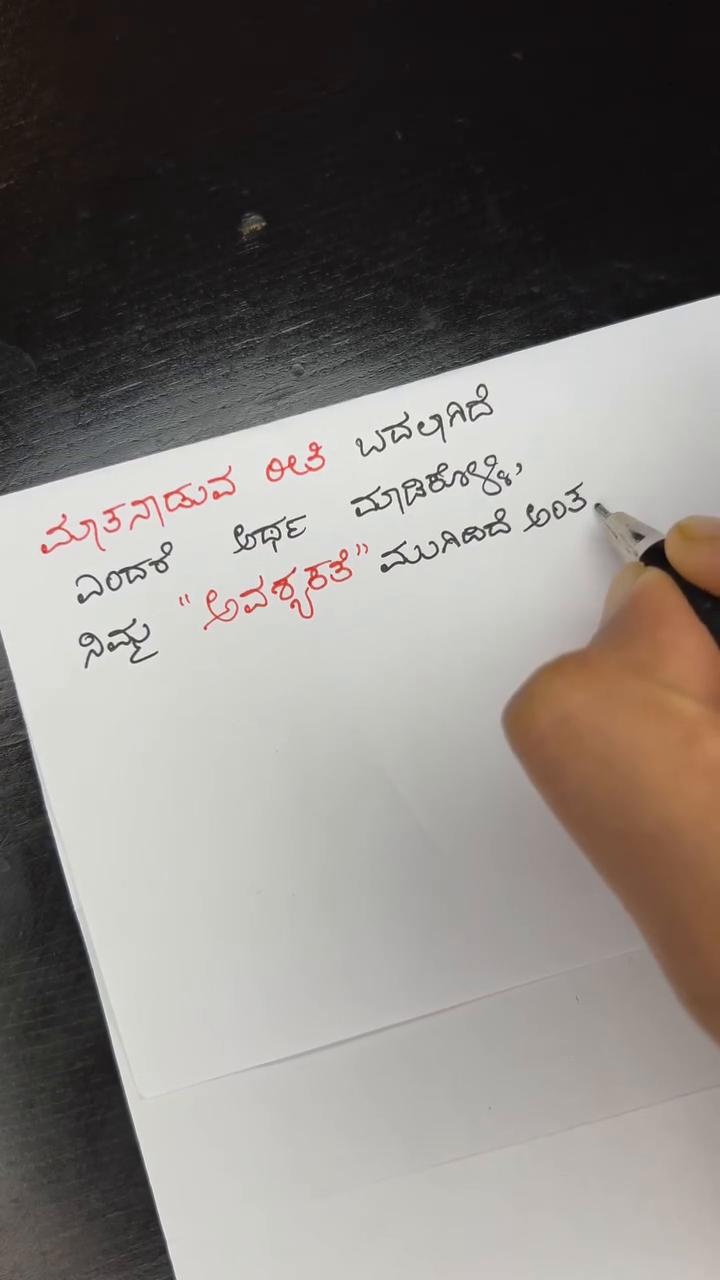 ಮಾತನಾಡುವ ರೀತಿ ಬದಲಾಗಿದೆ
ಎಂದರೆ ಅರ್ಥ ಮಾಡಿಕೊಳ್ಳಿ,
ನಿಮ್ಮ "ಅವಶ್ಯಕತೆ" ಮುಗಿದಿದೆ ಅಂತ.